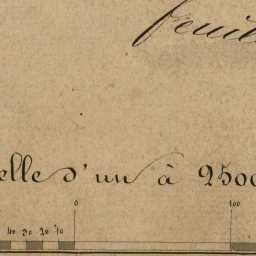 feuil
elle d'un à 2500
40 30 20 10 0 100